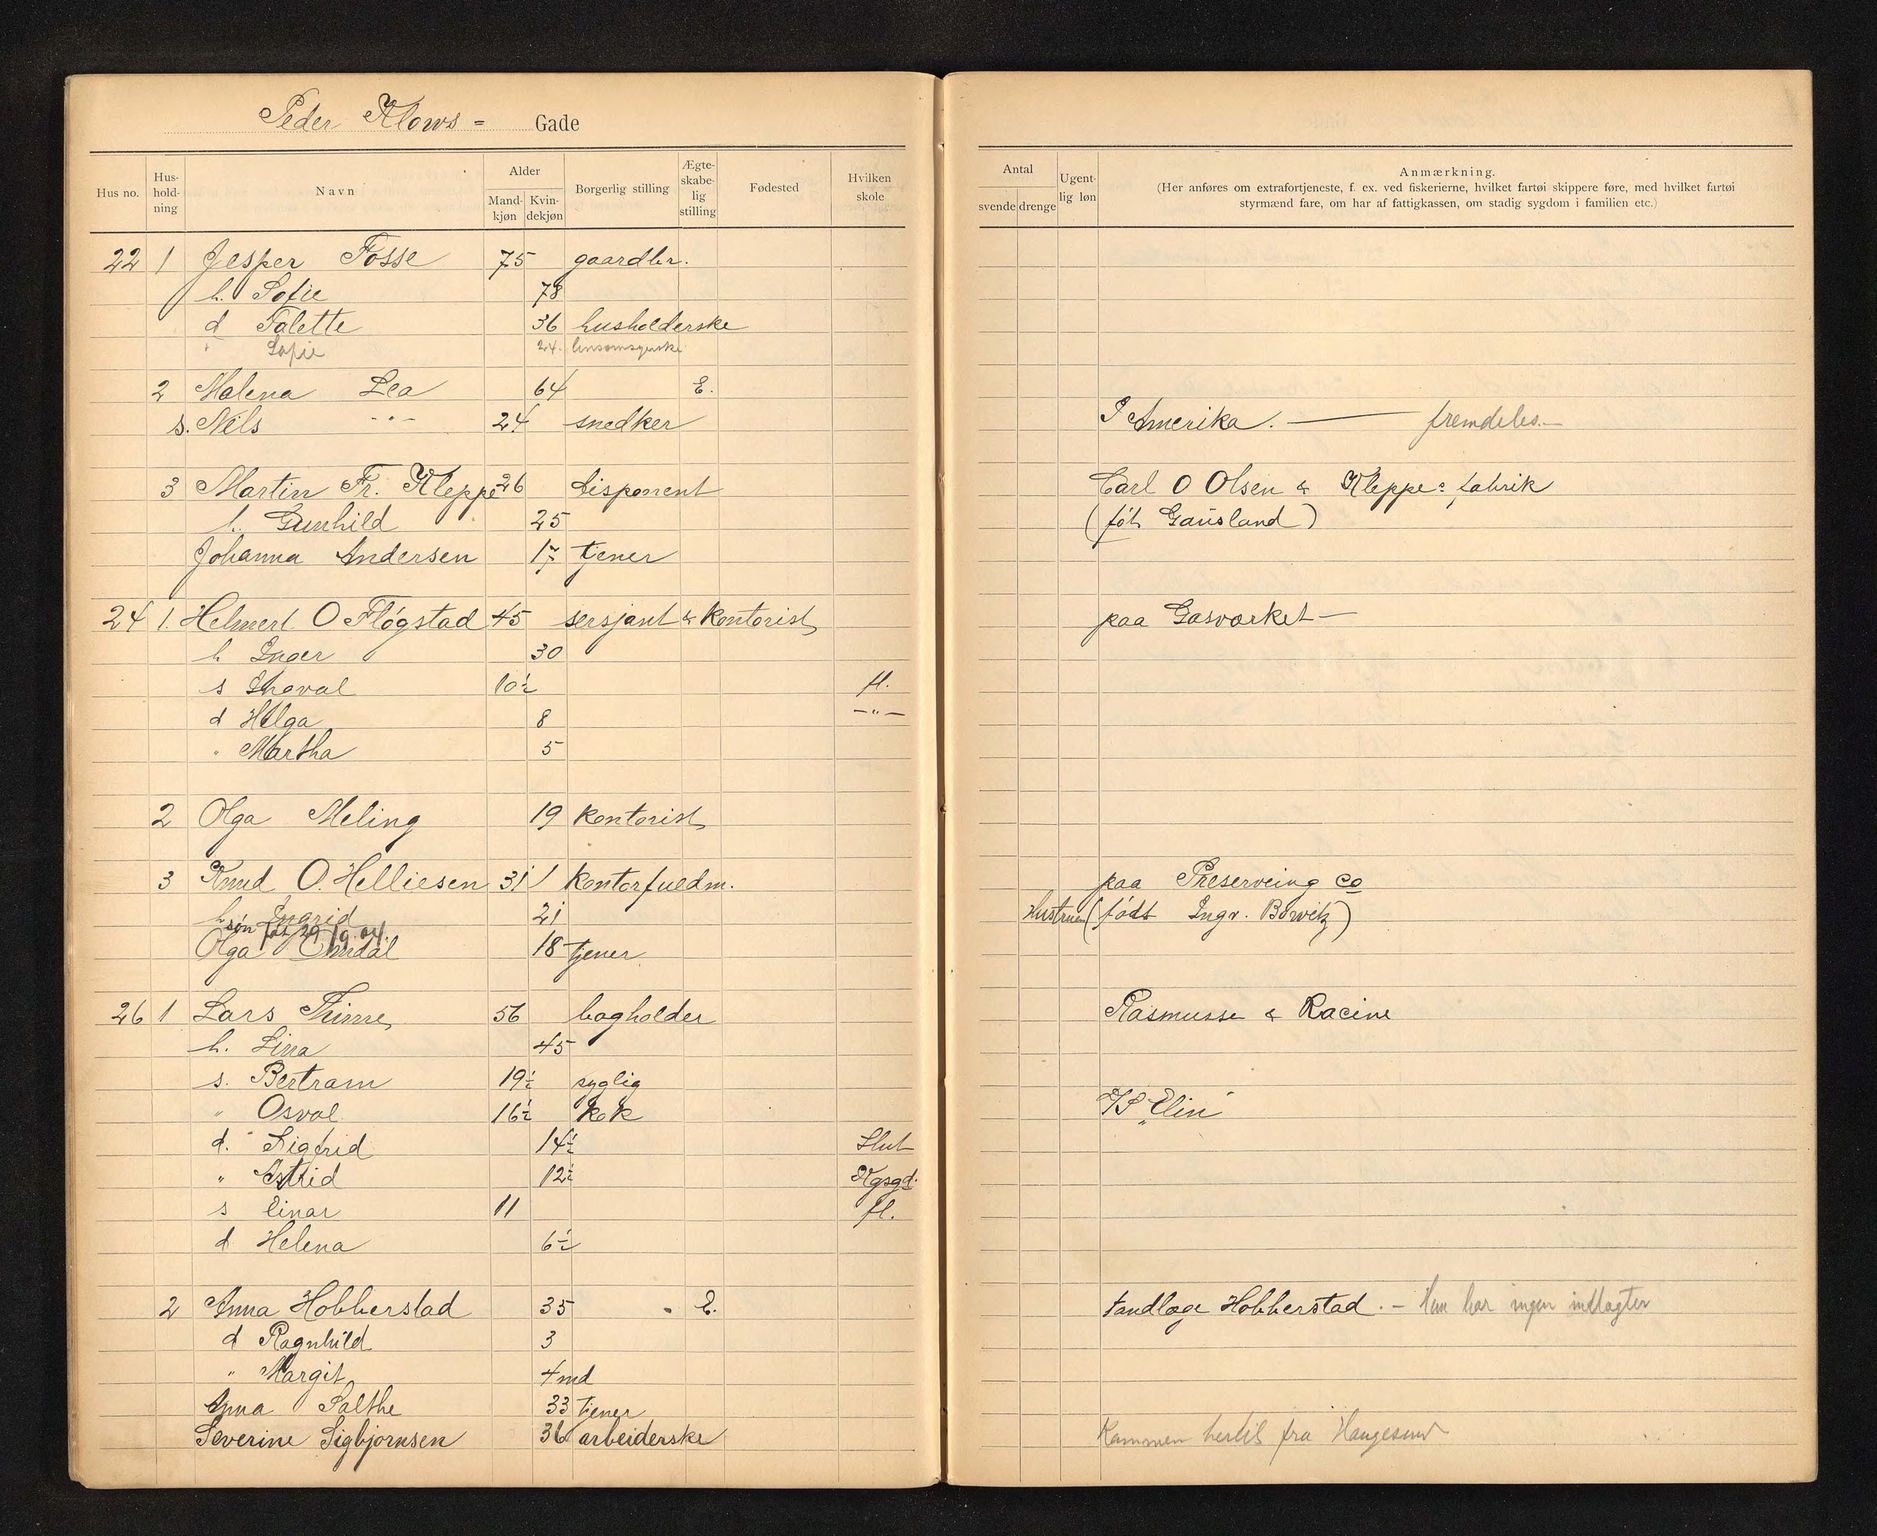 Peder Klows = Gade
Hus no. Hus-hold-ning Navn Alder Mand-kjøn Kvin-dekjøn Borgerlig stilling Ægte-skabe-lig stilling Fødested Hvilken skole
Antal svende drenge Ugent-lig løn Anmærkning.
(Her anføres om extrafortjeneste, f. ex. ved fiskerierne, hvilket fartøi skippere føre, med hvilket fartøi
styrmænd fare, om har af fattigkassen, om stadig sygdom i familien etc.)
22 1 Jesper Fosse 75 gaardbr.
h. Sofie 78
d Talette 36 husholderske
" Sofie 24. linsømsyerske
2 Malena Lea 64 E.
s. Nils -"- 24 snedker I Amerika. — fremdeles.—
3 Martin Fr. Kleppe 26 disponent Carl O Olsen & Kleppes fabrik
h. Gunhild 25 (føt Gausland)
Johanna Andersen 17 tjener
24 1. Helmert O Fløgstad 45 sersjant & Kontorist paa Gasværket —
h Inger 30
s Thoval 10½ fl.
d Helga 8 -"-
" Martha 5
2 Olga Meling 19 Kontorist
3 Knud O. Helliesen 31 1 Kontorfuldm. paa Preserveing Co
h. Ingrid 21 Hustruen (født Ingv. Bowitz)
søn føt 29/9 04.
Olga Omdal 18 tjener
26 1 Lars Thime 56 bogholder Rasmusse & Racine
h. Lina 45
s. Bertram 19½ syglig
" Osval 16½ kok D/S "Elin"
d. Sigfrid 14½ Slut
" Astrid 12½ Kgsgd.
s Einar 11 fl.
d Helena 6½
2 Anna Hobberstad 35 " E. tandlæge Hobberstad. — Hun har ingen indtægter
d Ragnhild 3
" Margit 4 md
Anna Salthe 33 tjener
Severine Sigbjørnsen 36 arbeiderske Kommen hertil fra Haugesund